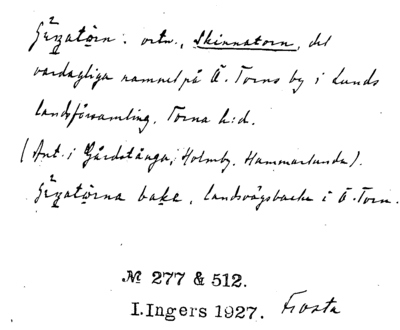 ortn., Skinnatorn, det
vardagliga namnet på Ö. Torns by i Lunds
landsförsamling. Torna h:d.
(Ant. i Gårdstånga, Holmby, Hammarlunda).
landsvägsbacke i Ö. Torn.
№ 277 & 512.
I. Ingers 1927. Frosta